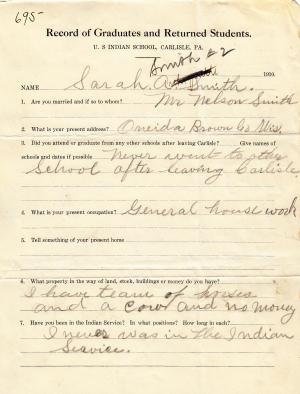 695-
Record of Graduates and Returned Students.
U. S INDIAN SCHOOL, CARLISLE, PA.
Smith #2
1910.
NAME Sarah Smith.
1. Are you married and if so to whom? Mr Nelson Smith
2. What is your present address? Oneida Brown Co Wis.
3. Did you attend or graduate from any other schools after leaving Carlisle? Give names of
schools and dates if possible Never went to other
School after leaving Carlisle.
4. What is your present occupation? General house work
5. Tell something of your present home
6. What property in the way of land, stock, buildings or money do you have?
I have team of horses
and a cow and no money
7. Have you been in the Indian Service? In what positions? How long in each?
I never was in the Indian
Service.